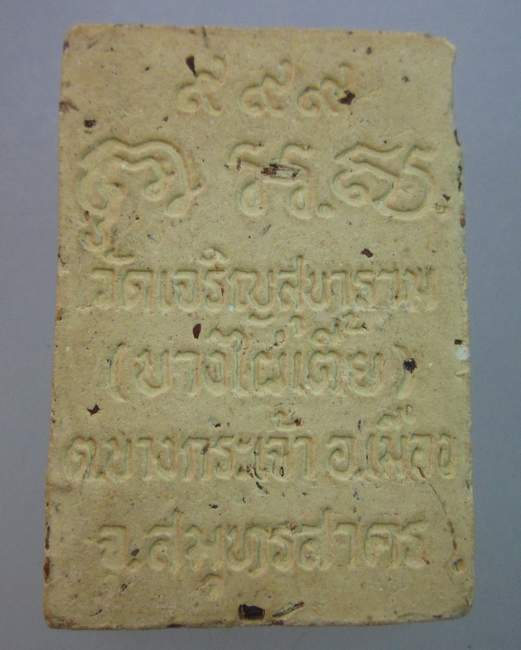 ๙ ๙ ๙
วัดเจริญสุขาราม
(บางไผ่เตี้ย)
ต.บางกระเจ้า อ.เมือง
จ.สมุทรสาคร